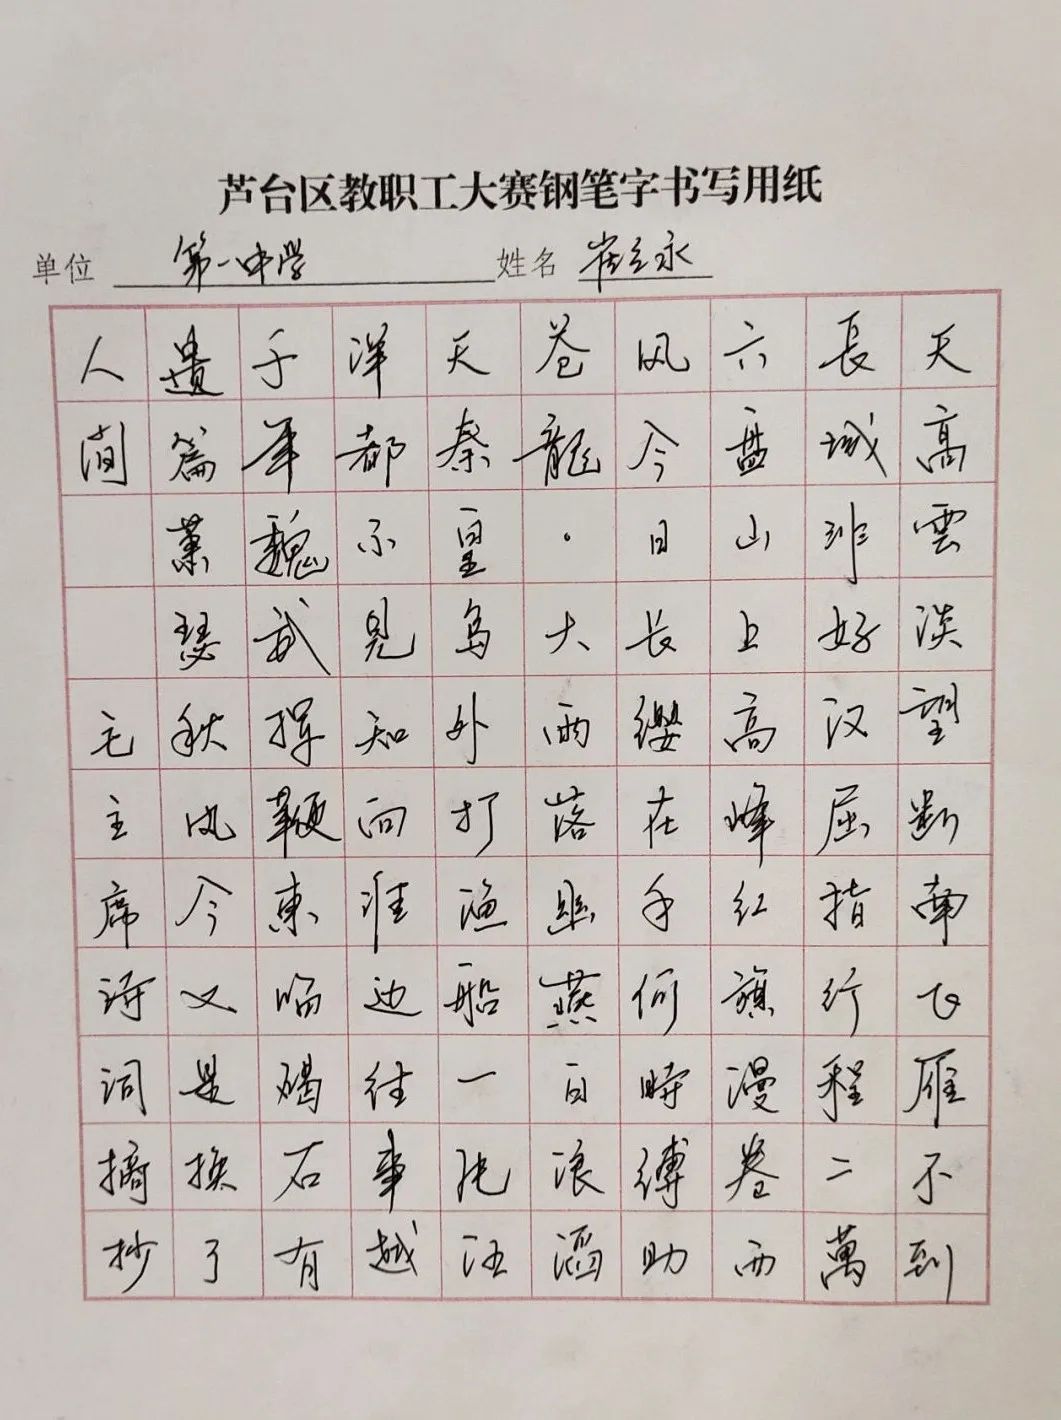 芦台区教职工大赛钢笔字书写用纸
单位 第一中学 姓名 崔立永
天高雲淡望断南飞雁不到
長城非好汉屈指行程二萬
六盘山上高峰红旗漫卷西
风今日长缨在手何時缚助
苍龍·大雨落幽燕白浪滔
天秦皇岛外打渔船一片汪
洋都不見知向谁边往事越
千年魏武揮鞭東临碣石有
遗篇萧瑟秋风今又是换了
人间 毛主席诗词摘抄